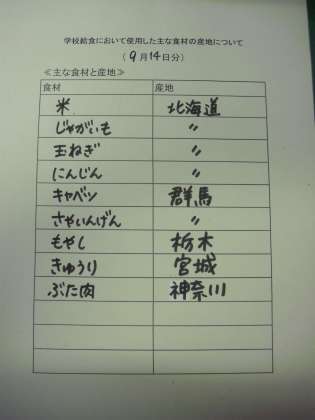 学校給食において使用した主な食材の産地について
(9月14日分)
≪主な食材と産地≫
食材 産地
米 北海道
じゃがいも 〃
玉ねぎ 〃
にんじん 〃
キャベツ 群馬
さやいんげん 〃
もやし 栃木
きゅうり 宮城
ぶた肉 神奈川